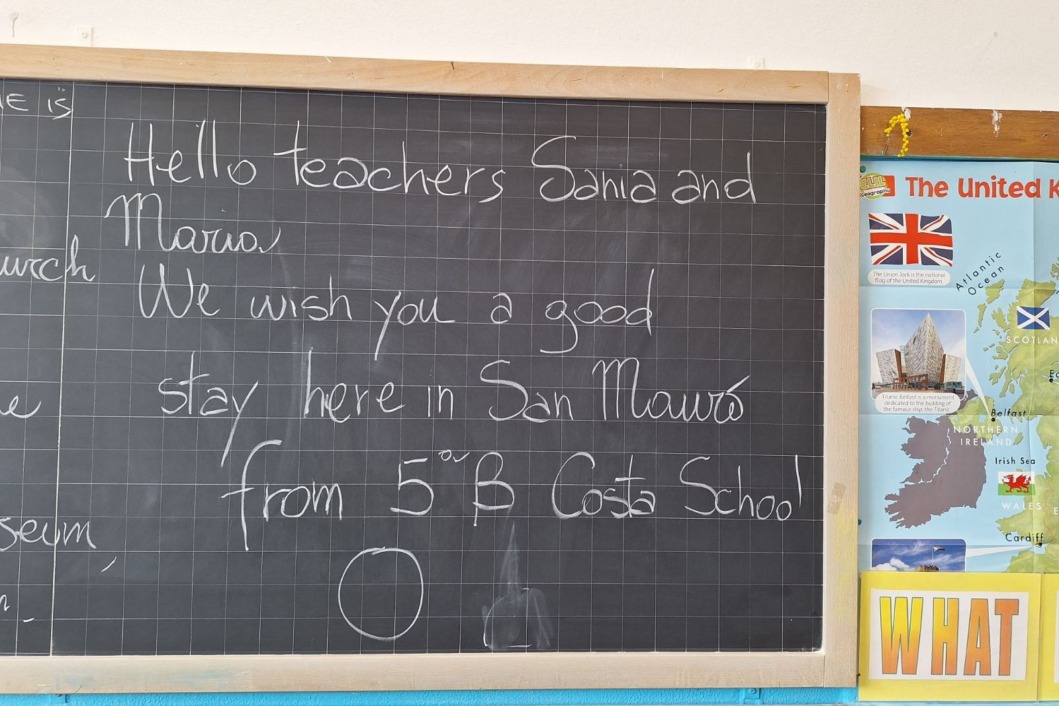 Hello teachers Sania and
Mario
We wish you a good
stay here in San Mauro
from 5ª B Costa School
IE is
urch
e
seum,
n.
The United K
The Union Jack is the national
flag of the United Kingdom
Atlantic
Ocean
SCOTLAN
Titanic Belfast is a monument
dedicated to the building of
the famous ship, the Titanic
Belfast
NORTHERN
IRELAND
Irish Sea
WALES
Cardiff
WHAT